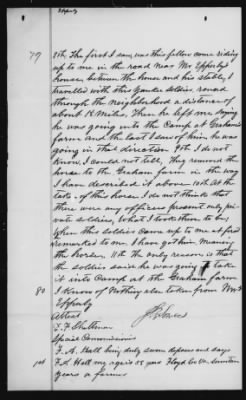 Epperly
79 8th The first I saw was this fellow come riding
up to me in the road near Mr Epperly's
house, between the house and his stable, I
travelled with this Yankee soldier, round
through the neighborhood a distance of
about miles, Then he left me saying
he was going into the Camp at Graham's
farm and the last I saw of him he was
going in that direction 9th I do not
know, I could not tell, They removed the
horse to the Graham farm in the way
I have described it above. 10th At the
tak. of this horse I do not think that
there were any officers present only pri-
vate soldiers, What I took them to be,
When this soldier came up to me at first
remarked to me I have got him, Meaning
the horse. 11th The only reason is that
the soldier said he was going to take
it into Camp at the Graham farm
80 I know of Nothing else taken from Wm
Epperly
Attest
T. F.
Special Commissioner
F. A. Hall being duly sworn deposes and says
1st F. A. Hall my age is years Floyd Co Va
years a farmer